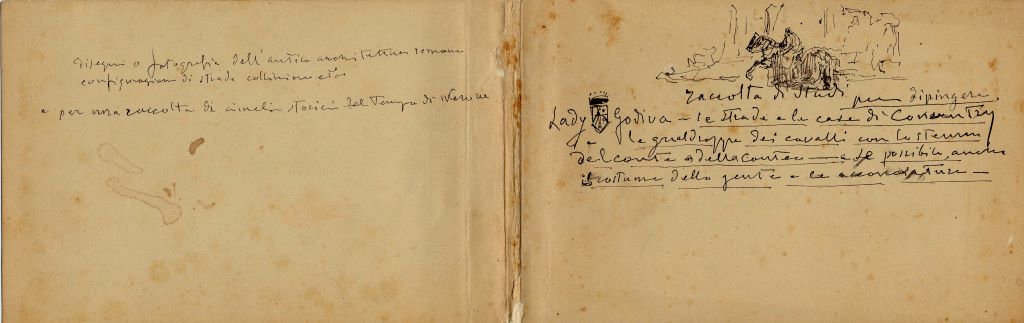 disegni o fotografie dell'antica architettura romana
configurazioni di strade collinine etc
e per una raccolta di cimelii storici del Tempo di Nerone
raccolta di studi per dipingere
Lady Godiva – le strade e le case di Conventry
e le gualdrappe dei cavalli con lo stemma
del conte e della contea – e se possibile, anche
il costume della gente e le acconciature –